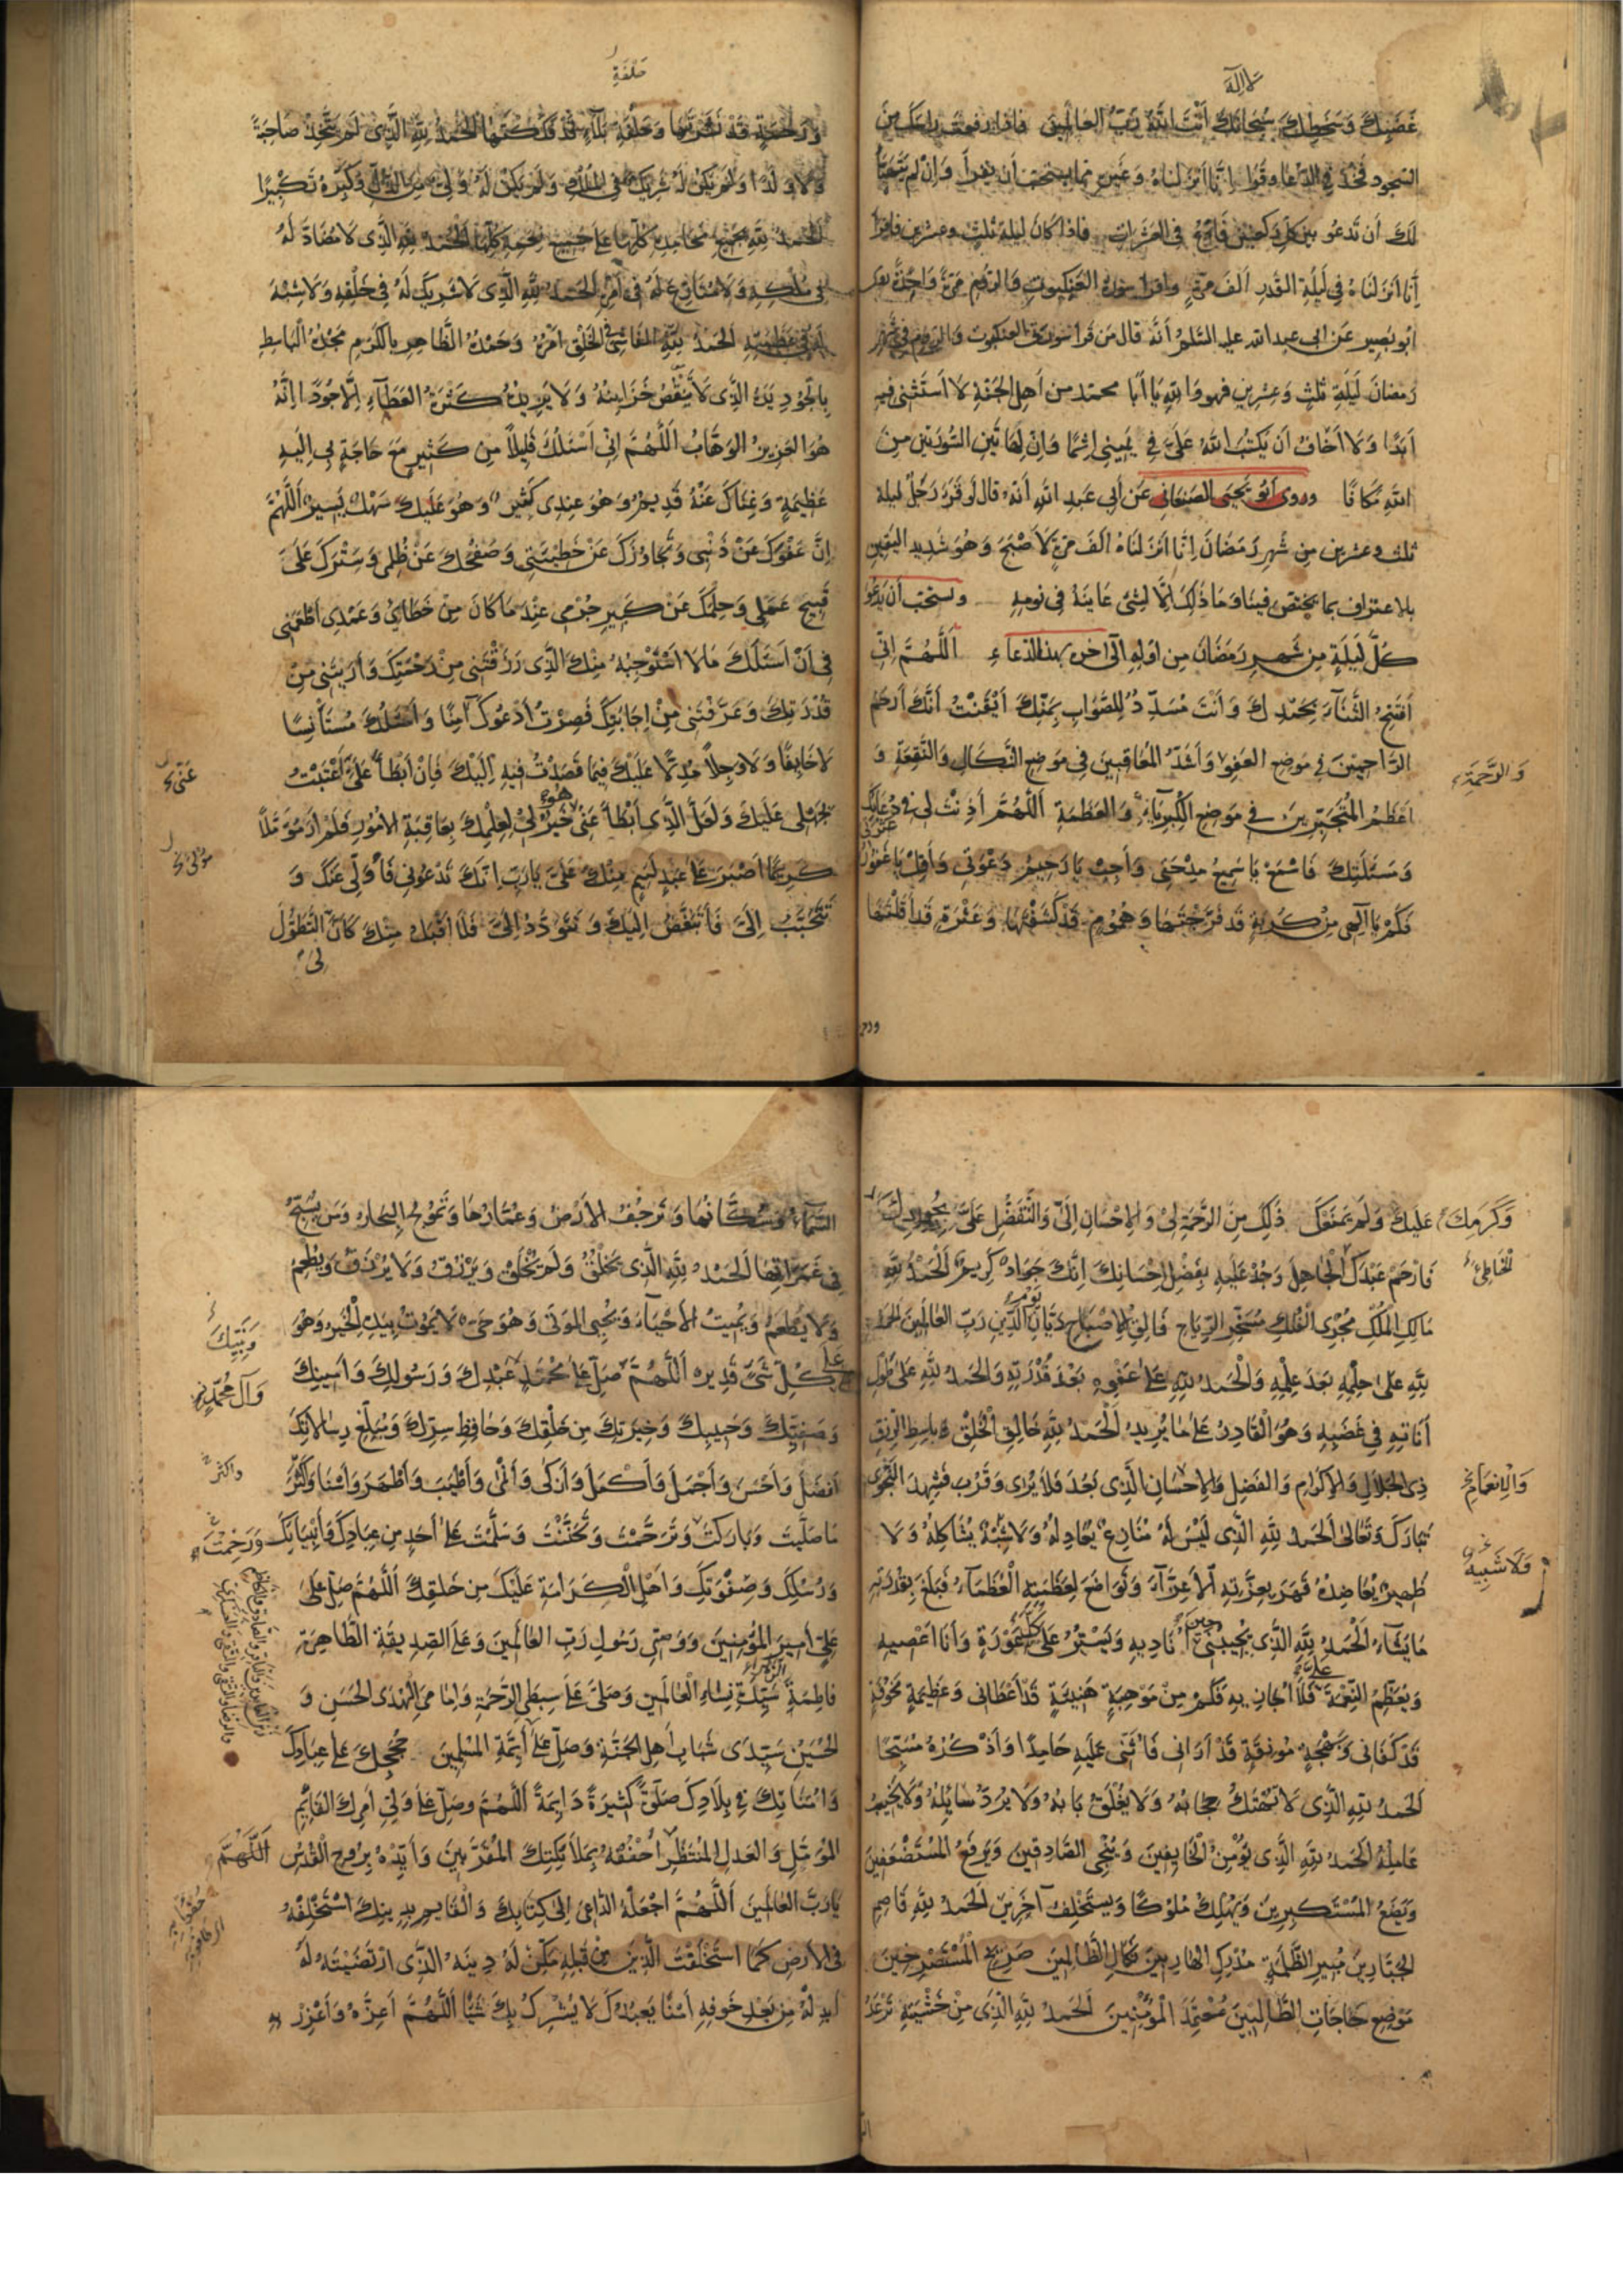 لا اله
غَضَبِكَ وَسَخَطِكَ سُبْحَانَكَ أَنْتَ اللّٰهُ رَبُّ العَالَمِينَ فاذا رفعت راسك من
السجود فخذ في الدعا وقرا انا انزلناه وغير ذلك مما يستحب أن يقرأ وان لم يتهيا
لك أن تدعو بين كل ركعتين فادع في العشرات فاذا كان ليلة ثلث وعشرين فاقرا
إنا انزلناه في ليلة القدر الف مرة واقرا سورة العنكبوت والروم مرة واحدة
ابو بصير عن ابي عبد الله عليه السلم أنه قال من قرا سورتي العنكبوت والروم في شهر
رمضان ليلة ثلث وعشرين فهو والله يا ابا محمد من اهل الجنة لا استثنى فيه
ابدا ولا اخاف ان يكتب الله علىّ في يميني اثما وان لهاتين السورتين من
الله مكانا وروى ابو يحيى الصنعاني عن أبي عبد الله أنه قال لو قرء رجل ليلة
ثلث وعشرين من شهر رمضان انا انزلناه الف مرة لاصبح وهو شديد اليقين
بالاعتراف بما يختص فينا وما ذلك الا لشئ عاينه في نومه ويستحب أن يدعو
كل ليلة من شهر رمضان من اوله الى اخره بهذا الدعاء اَللّٰهُمَّ اِنّي
اَفْتَتِحُ الثَّنَاءَ بِحَمْدِكَ وَاَنْتَ مُسَدِّدٌ لِلصَّوَابِ بِمَنِّكَ اَيْقَنْتُ اَنَّكَ اَرْحَمُ
الرَّاحِمِينَ فِي مَوضِعِ العَفْوِ وَاَشَدُّ المُعَاقِبِينَ فِي مَوضِعِ النَّكَالِ وَالنَّقِمَةِ وَ
وَالرَّحْمَةِ
اَعْظَمُ المُتَجَبِّرِينَ فِي مَوضِعِ الكِبْرِيَآءِ وَالعَظَمَةِ اَللّٰهُمَّ اَذِنْتَ لِي فِي دُعَائِكَ
وَمَسْئَلَتِكَ فَاسْمَعْ يَا سَمِيعُ مِدْحَتِي وَاَجِبْ يَا رَحِيمُ دَعْوَتِي وَاَقِلْ يَا غَفُورُ
عَثْرَتي
فَكَمْ يَا اِلٰهِي مِنْ كُرْبَةٍ قَدْ فَرَّجْتَهَا وَهُمُومٍ قَدْ كَشَفْتَهَا وَعَثْرَةٍ قَدْ اَقَلْتَهَا
حَلْقَةِ
وَرَحْمَةٍ قَدْ نَشَرْتَهَا وَحَلْقَةِ بَلَآءٍ قَدْ فَكَكْتَهَا الحَمْدُ لِلّٰهِ الَّذِي لَمْ يَتَّخِذْ صَاحِبَةً
وَلَا وَلَدًا وَلَمْ يَكُنْ لَهُ شَرِيكٌ فِي المُلْكِ وَلَمْ يَكُنْ لَهُ وَلِيٌّ مِنَ الذُّلِّ وَكَبِّرْهُ تَكْبِيرًا
اَلحَمْدُ لِلّٰهِ بِجَمِيعِ مَحَامِدِهِ كُلِّهَا عَلَى جَمِيعِ نِعَمِهِ كُلِّهَا اَلحَمْدُ لِلّٰهِ الَّذِي لَا مُضَادَّ لَهُ
فِي مُلْكِهِ وَلَا مُنَازِعَ لَهُ فِي اَمْرِهِ اَلحَمْدُ لِلّٰهِ الَّذِي لَا شَرِيكَ لَهُ فِي خَلْقِهِ وَلَا شِبْهَ
لَهُ فِي عَظَمَتِهِ اَلحَمْدُ لِلّٰهِ الفَاشِي فِي الخَلْقِ اَمْرُهُ وَحَمْدُهُ الظَّاهِرِ بِالكَرَمِ مَجْدُهُ البَاسِطِ
بِالجُودِ يَدَهُ الَّذِي لَا تَنْقُصُ خَزَائِنُهُ وَلَا يَزِيدُهُ كَثْرَةُ العَطَآءِ اِلَّا جُودًا اِنَّهُ
هُوَ العَزِيزُ الوَهَّابُ اَللّٰهُمَّ اِنِّي اَسْئَلُكَ قَلِيلًا مِنْ كَثِيرٍ مَعَ حَاجَةٍ بِي اِلَيْهِ
عَظِيمَةٍ وَغِنَاكَ عَنْهُ قَدِيمٌ وَهُوَ عِنْدِي كَثِيرٌ وَهُوَ عَلَيْكَ سَهْلٌ يَسِيرٌ اَللّٰهُمَّ
اِنَّ عَفْوَكَ عَنْ ذَنْبِي وَتَجَاوُزَكَ عَنْ خَطِيئَتِي وَصَفْحَكَ عَنْ ظُلْمِي وَسَتْرَكَ عَلَى
قَبِيحِ عَمَلِي وَحِلْمَكَ عَنْ كَبِيرِ جُرْمِي عِنْدَ مَا كَانَ مِنْ خَطَائِي وَعَمْدِي اَطْمَعَنِي
فِي اَنْ اَسْئَلَكَ مَا لَا اَسْتَوْجِبُهُ مِنْكَ الَّذِي رَزَقْتَنِي مِنْ رَحْمَتِكَ وَاَرَيْتَنِي مِنْ
قُدْرَتِكَ وَعَرَّفْتَنِي مِنْ اِجَابَتِكَ فَصِرْتُ اَدْعُوكَ آمِنًا وَاَسْئَلُكَ مُسْتَأْنِسًا
لَا خَائِفًا وَلَا وَجِلًا مُدِلًّا عَلَيْكَ فِيمَا قَصَدْتُ فِيهِ اِلَيْكَ فَاِنْ اَبْطَأَ عَلَيَّ عَتَبْتُ
عَنّي
بِجَهْلِي عَلَيْكَ وَلَعَلَّ الَّذِي اَبْطَأَ عَنِّي هُوَ خَيْرٌ لِي لِعِلْمِكَ بِعَاقِبَةِ الاُمُورِ فَلَمْ اَرَ مُؤَمَّلًا
مولى
كَرِيمًا اَصْبَرَ عَلَى عَبْدٍ لَئِيمٍ مِنْكَ عَلَيَّ يَا رَبِّ اِنَّكَ تَدْعُونِي فَاُوَلِّي عَنْكَ وَ
تَتَحَبَّبُ اِلَيَّ فَاَتَبَغَّضُ اِلَيْكَ وَتَتَوَدَّدُ اِلَيَّ فَلَا اَقْبَلُ مِنْكَ كَأَنَّ التَّطَوُّلَ
لِي
عَلَيْكَ وَلَمْ يَمْنَعْكَ ذٰلِكَ مِنَ الرَّحْمَةِ لِي وَالاِحْسَانِ اِلَيَّ وَالتَّفَضُّلِ عَلَيَّ بِجُودِكَ
وَكَرَمِكَ
فَارْحَمْ عَبْدَكَ الجَاهِلَ وَجُدْ عَلَيْهِ بِفَضْلِ اِحْسَانِكَ اِنَّكَ جَوَادٌ كَرِيمٌ اَلْحَمْدُ لِلّٰهِ
الخَاطِئَ
مَالِكِ المُلْكِ مُجْرِي الفُلْكِ مُسَخِّرِ الرِّيَاحِ فَالِقِ الاِصْبَاحِ دَيَّانِ يَوْمِ الدِّينِ رَبِّ العَالَمِينَ اَلحَمْدُ
لِلّٰهِ عَلَى حِلْمِهِ بَعْدَ عِلْمِهِ وَالْحَمْدُ لِلّٰهِ عَلَى عَفْوِهِ بَعْدَ قُدْرَتِهِ وَالحَمْدُ لِلّٰهِ عَلَى طُولِ
اَنَاتِهِ فِي غَضَبِهِ وَهُوَ القَادِرُ عَلَى مَا يُرِيدُ اَلْحَمْدُ لِلّٰهِ خَالِقِ الخَلْقِ بَاسِطِ الرِّزْقِ
ذِي الجَلَالِ وَالاِكْرَامِ وَالفَضْلِ وَالاِحْسَانِ الَّذِي بَعُدَ فَلَا يُرٰى وَقَرُبَ فَشَهِدَ النَّجْوٰى
وَالاِنْعَامِ
تَبَارَكَ وَتَعَالَى اَلحَمْدُ لِلّٰهِ الَّذِي لَيْسَ لَهُ مُنَازِعٌ يُعَادِلُهُ وَلَا شِبْهٌ يُشَاكِلُهُ وَلَا
وَلَا شَبِيهٌ
ظَهِيرٌ يُعَاضِدُهُ قَهَرَ بِعِزَّتِهِ الاَعِزَّآءَ وَتَوَاضَعَ لِعَظَمَتِهِ العُظَمَآءُ فَبَلَغَ بِقُدْرَتِهِ
مَا يَشَاءُ اَلْحَمْدُ لِلّٰهِ الَّذِي يُجِيبُنِي حِينَ اُنَادِيهِ وَيَسْتُرُ عَلَيَّ كُلَّ عَوْرَةٍ وَاَنَا اَعْصِيهِ
وَيُعَظِّمُ النِّعْمَةَ عَلَيَّ فَلَا اُجَازِيهِ فَكَمْ مِنْ مَوْهِبَةٍ هَنِيئَةٍ قَدْ اَعْطَانِي وَعَظِيمَةٍ مَخُوفَةٍ
قَدْ كَفَانِي وَبَهْجَةٍ مُونِقَةٍ قَدْ اَرَانِي فَاُثْنِي عَلَيْهِ حَامِدًا وَاَذْكُرُهُ مُسَبِّحًا
اَلحَمْدُ لِلّٰهِ الَّذِي لَا يُهْتَكُ حِجَابُهُ وَلَا يُغْلَقُ بَابُهُ وَلَا يُرَدُّ سَائِلُهُ وَلَا يُخَيَّبُ
عَامِلُهُ اَلحَمْدُ لِلّٰهِ الَّذِي يُؤْمِنُ الخَائِفِينَ وَيُنَجِّي الصَّادِقِينَ وَيَرْفَعُ المُسْتَضْعَفِينَ
وَيَضَعُ المُسْتَكْبِرِينَ وَيُهْلِكُ مُلُوكًا وَيَسْتَخْلِفُ آخَرِينَ اَلحَمْدُ لِلّٰهِ قَاصِمِ
الجَبَّارِينَ مُبِيرِ الظَّلَمَةِ مُدْرِكِ الهَارِبِينَ نَكَالِ الظَّالِمِينَ صَرِيخِ المُسْتَصْرِخِينَ
مَوْضِعِ حَاجَاتِ الطَّالِبِينَ مُعْتَمَدِ المُؤْمِنِينَ اَلحَمْدُ لِلّٰهِ الَّذِي مِنْ خَشْيَتِهِ تَرْعَدُ
السَّمَاءُ وَسُكَّانُهَا وَتَرْجُفُ الاَرْضُ وَعُمَّارُهَا وَتَمُوجُ البِحَارُ وَمَنْ يُسَبِّحُ
فِي غَمَرَاتِهَا اَلحَمْدُ لِلّٰهِ الَّذِي يَخْلُقُ وَلَمْ يُخْلَقْ وَيَرْزُقُ وَلَا يُرْزَقُ وَيُطْعِمُ
وَلَا يُطْعَمُ وَيُمِيتُ الاَحْيَآءَ وَيُحْيِي المَوْتَى وَهُوَ حَيٌّ لَا يَمُوتُ بِيَدِهِ الْخَيْرُ وَهُوَ
وَنَبِيِّكَ
عَلَى كُلِّ شَيْءٍ قَدِيرٌ اَللّٰهُمَّ صَلِّ عَلَى مُحَمَّدٍ عَبْدِكَ وَرَسُولِكَ وَاَمِينِكَ
وَآلِ مُحَمَّدٍ
وَصَفِيِّكَ وَحَبِيبِكَ وَخِيَرَتِكَ مِنْ خَلْقِكَ وَحَافِظِ سِرِّكَ وَمُبَلِّغِ رِسَالَاتِكَ
اَفْضَلَ وَاَحْسَنَ وَاَجْمَلَ وَاَكْمَلَ وَاَزْكَى وَاَنْمَى وَاَطْيَبَ وَاَطْهَرَ وَاَسْنَا وَاَكْثَرَ
واكثر
مَا صَلَّيْتَ وَبَارَكْتَ وَتَرَحَّمْتَ وَتَحَنَّنْتَ وَسَلَّمْتَ عَلَى اَحَدٍ مِنْ عِبَادِكَ وَاَنْبِيَائِكَ
وَرَحِمْتَ
وَرُسُلِكَ وَصِفْوَتِكَ وَاَهْلِ الكَرَامَةِ عَلَيْكَ مِنْ خَلْقِكَ اَللّٰهُمَّ صَلِّ عَلَى
عَلِيٍّ اَمِيرِ المُؤْمِنِينَ وَوَصِيِّ رَسُولِ رَبِّ العَالَمِينَ وَعَلَى الصِّدِّيقَةِ الطَّاهِرَةِ
فَاطِمَةَ الزهراء سَيِّدَةِ نِسَاءِ العَالَمِينَ وَصَلِّ عَلَى سِبْطَيِ الرَّحْمَةِ وَاِمَامَيِ الهُدَى الحَسَنِ وَ
الحُسَيْنِ سَيِّدَيْ شَبَابِ اَهْلِ الجَنَّةِ وَصَلِّ عَلَى اَئِمَّةِ المُسْلِمِينَ حُجَجِكَ عَلَى عِبَادِكَ
وَاُمَنَائِكَ فِي بِلَادِكَ صَلٰوةً كَثِيرَةً دَائِمَةً اَللّٰهُمَّ وَصَلِّ عَلَى وَلِيِّ اَمْرِكَ القَائِمِ
المُؤَمَّلِ وَالعَدْلِ المُنْتَظَرِ اُحْفُفْهُ بِمَلَائِكَتِكَ المُقَرَّبِينَ وَاَيِّدْهُ بِرُوحِ القُدُسِ
اَللّٰهُمَّ
يَا رَبَّ العَالَمِينَ اَللّٰهُمَّ اجْعَلْهُ الدَّاعِيَ اِلَى كِتَابِكَ وَالقَائِمَ بِدِينِكَ اسْتَخْلِفْهُ
فِي الاَرْضِ كَمَا اسْتَخْلَفْتَ الَّذِينَ مِنْ قَبْلِهِ مَكِّنْ لَهُ دِينَهُ الَّذِي ارْتَضَيْتَهُ لَهُ
اَبْدِلْهُ مِنْ بَعْدِ خَوْفِهِ اَمْنًا يَعْبُدُكَ لَا يُشْرِكُ بِكَ شَيْئًا اَللّٰهُمَّ اَعِزَّهُ وَاَعْزِزْ بِهِ